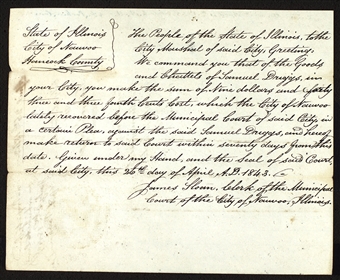 State of Illinois
City of Nauvoo
Hancock County
The People of the State of Illinois, to the
City Marshal of said City, Greeting.
We command you that of the Goods
and Chattels of Samuel Driggs, in
your City, you make the sum of Nine dollars and forty
three and three fourth Cents Cost, which the City of Nauvoo
lately recovered before the Municipal Court of said City in
a certain Plea, against the said Samuel Driggs, and hereof
make return to said Court within seventy days from this
date. Given under my Hand, and the Seal of said Court,
at said City, this 26th day of April A.D. 1843.
James Sloan, Clerk of the Municipal
Court of the City of Nauvoo, Illinois.